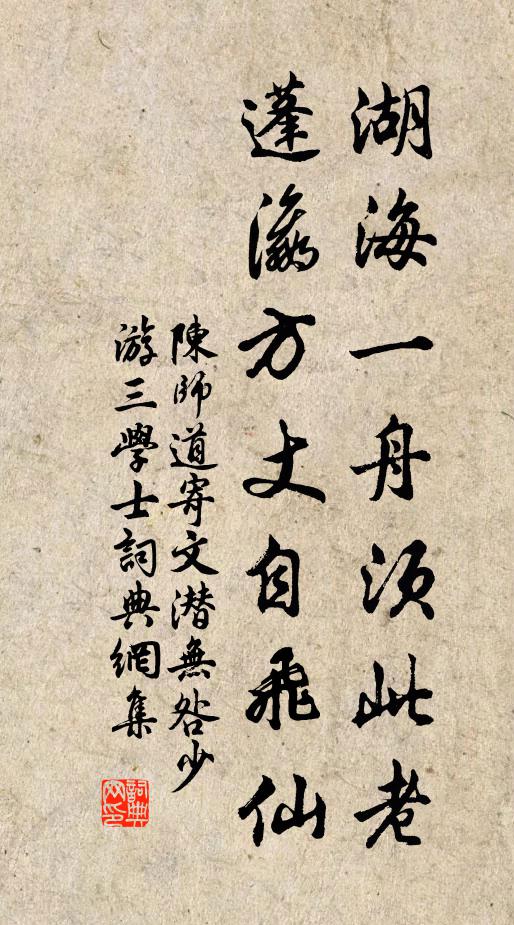 湖海一舟須此老
蓬瀛方丈自飛仙
陳師道寄文潜無咎少
游三學士詞典網集
詞典网印